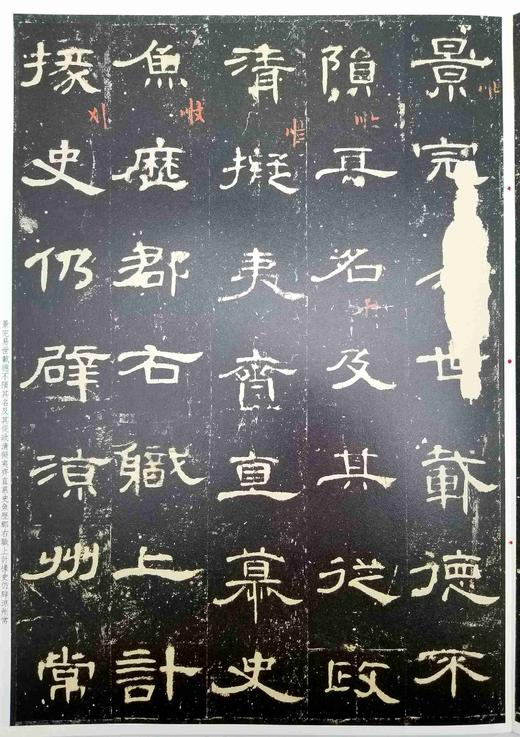 景完世載德不
隕其名及其從政
清擬夷齊直慕史
魚歷郡右職上計
掾史仍辟涼州常
景完世載德不隕其名及其從政清擬夷齊直慕史魚歷郡右職上計掾史仍辟涼州常